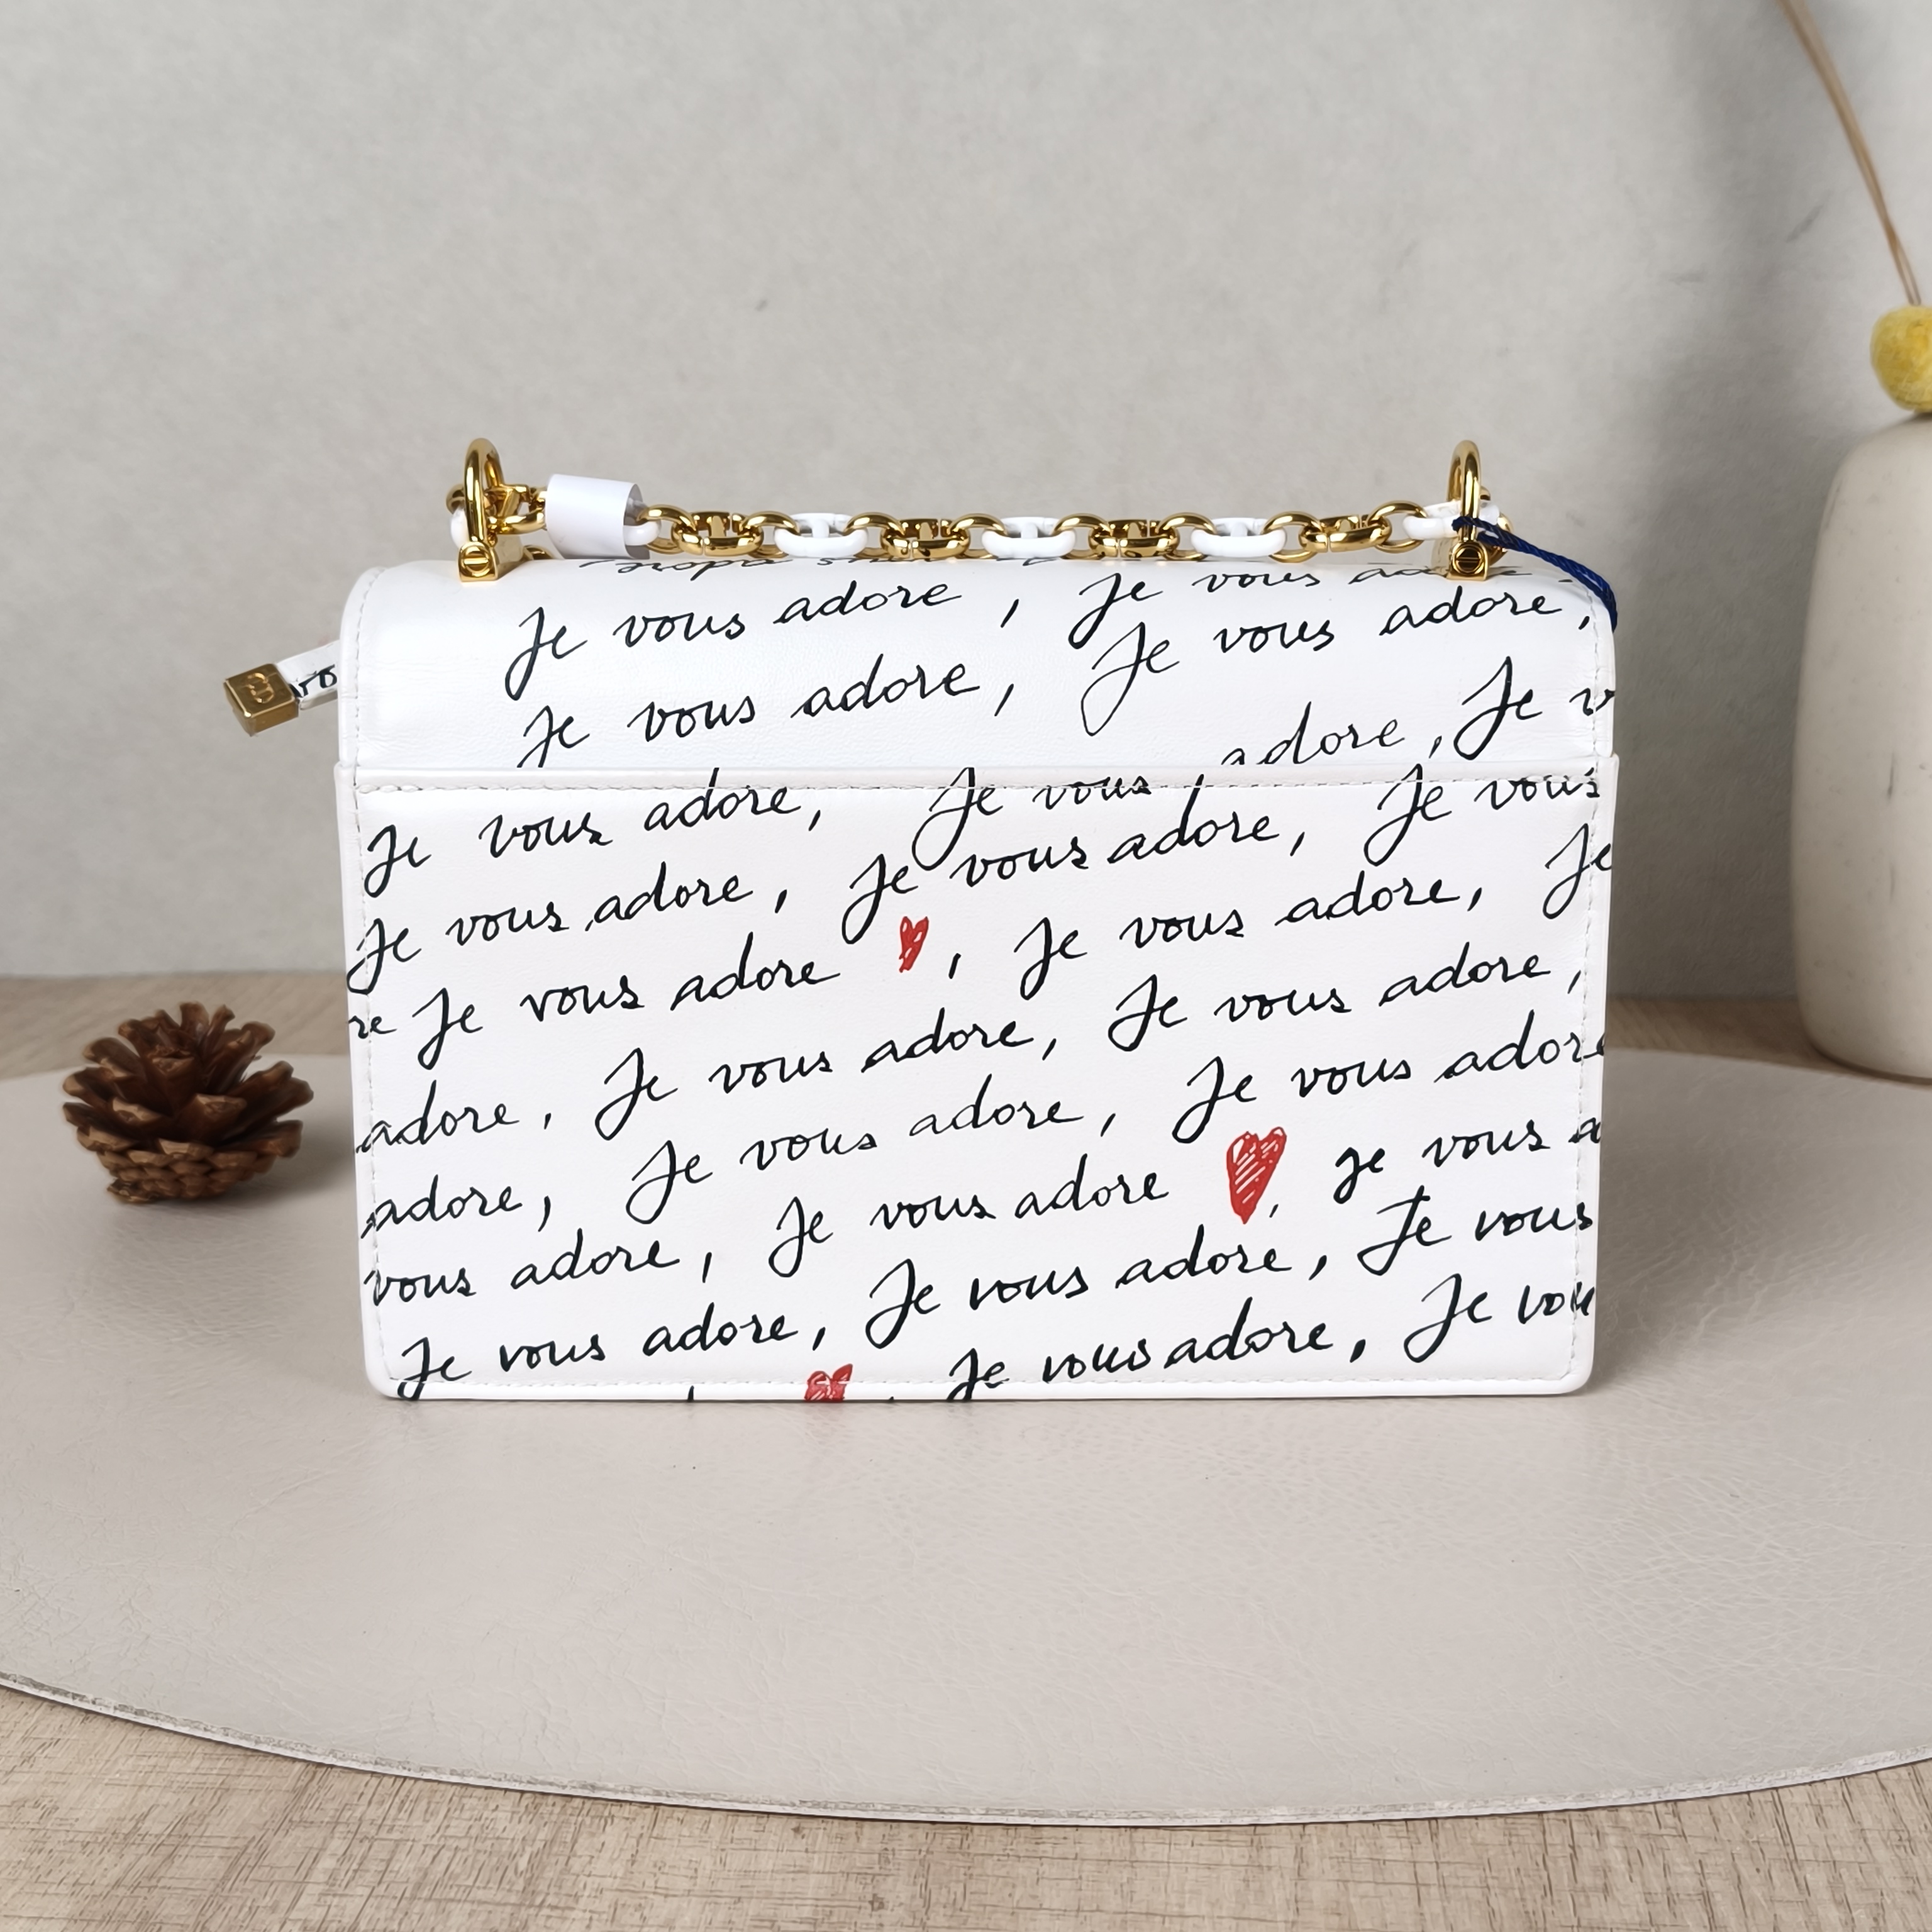 Je vous adore, Je vous
Je vous adore, Je vous adore,
adore, Je v
Je vous adore, Je vous
Je vous adore, Je vous adore, Je vous
re Je vous adore, Je vous adore, Je
adore, Je vous adore, Je vous adore,
adore, Je vous adore, Je vous adore
vous adore, Je vous adore, je vous a
Je vous adore, Je vous adore, Je vous
Je vous adore, Je vou